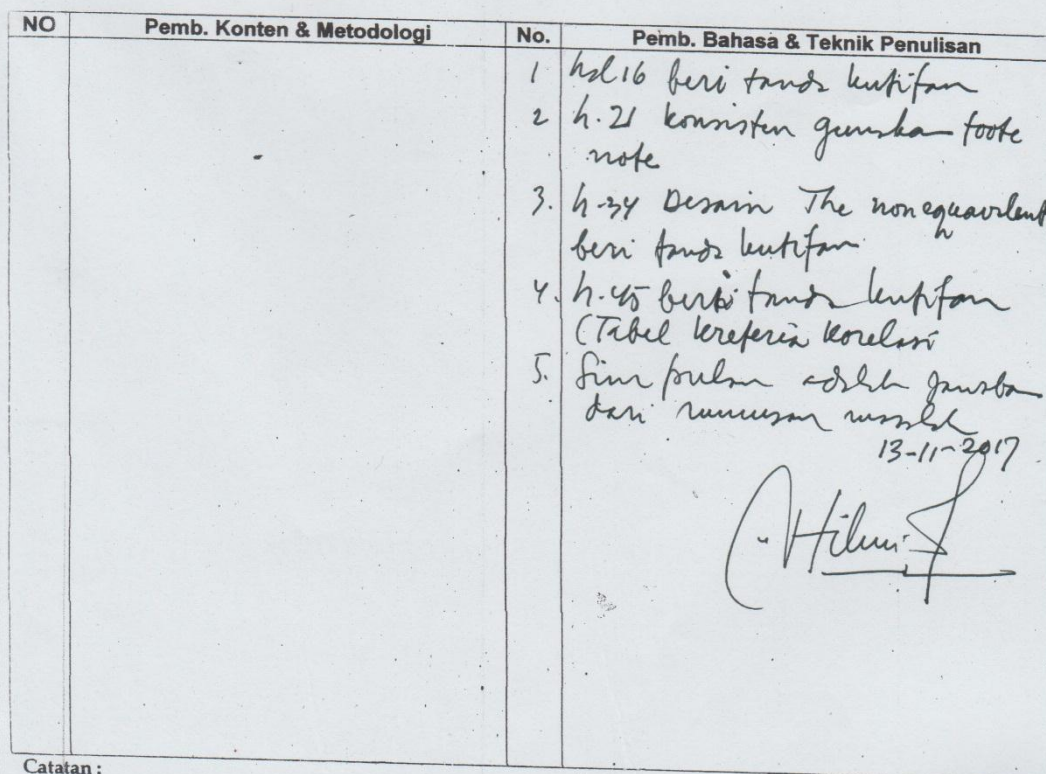 NO Pemb. Konten & Metodologi No. Pemb. Bahasa & Teknik Penulisan
1 hal 16 beri tanda kutifan
2 h. 21 konsisten gunakan foote
note
3. h-34 Desain The nonequavilent
beri tanda kutifan
4. h. 45 beri tanda kutifan
(Tabel kreteria korelasi
5. Simpulan adalah jawaban
dari rumusan masalah
13-11-2017
Hilmi
Catatan :